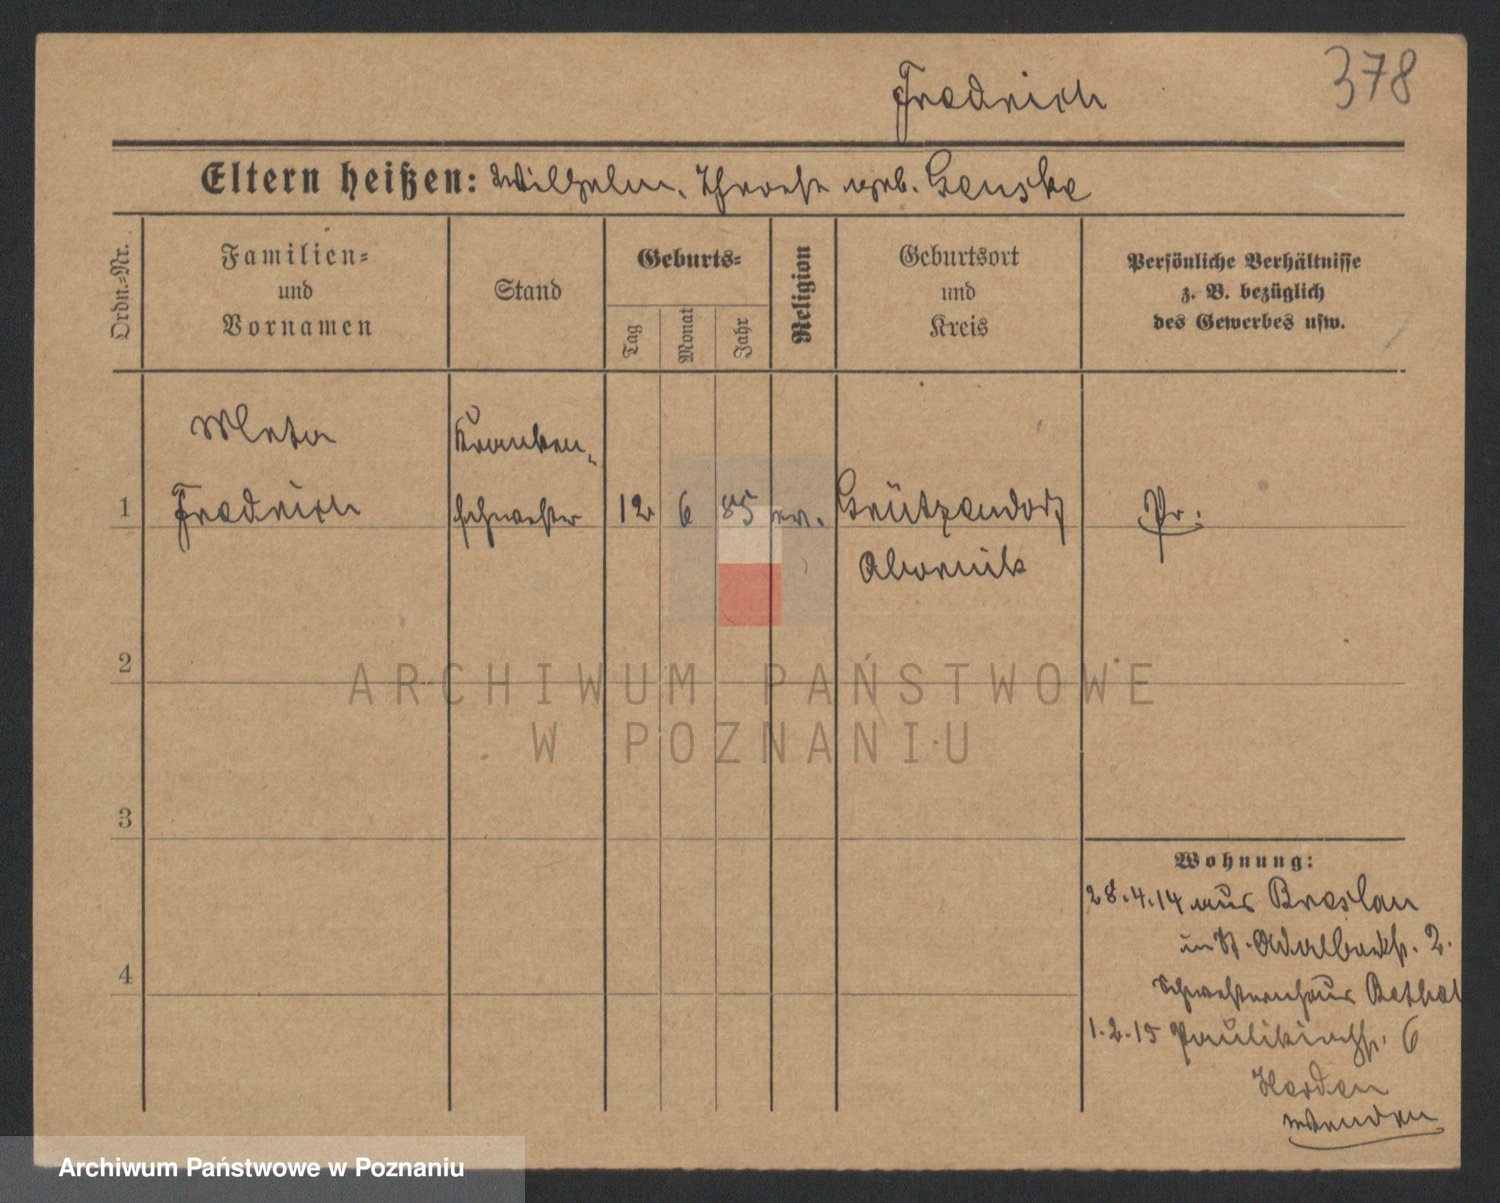 Fredrich
378
Eltern heißen: Wilhelm, geb. Genske
Ordn.-Nr.
Familien-
und
Vornamen
Stand
Geburts-
Tag
Monat
Jahr
Religion
Geburtsort
und
Kreis
Persönliche Verhältnisse
z. B. bezüglich
des Gewerbes usw.
Meta
Kranken-
1
Fredrich
schwester
12
6
85
ev.
Grützendorf
Pr.
Obornik
2
ARCHIWUM PAŃSTWOWE
W POZNANIU
3
Wohnung:
28.4.14 aus Breslau
in St. Adalbertstr. 2.
4
Schwesternhaus Bethel
1.2.15 Paulikirchstr. 6
wenden
Archiwum Państwowe w Poznaniu